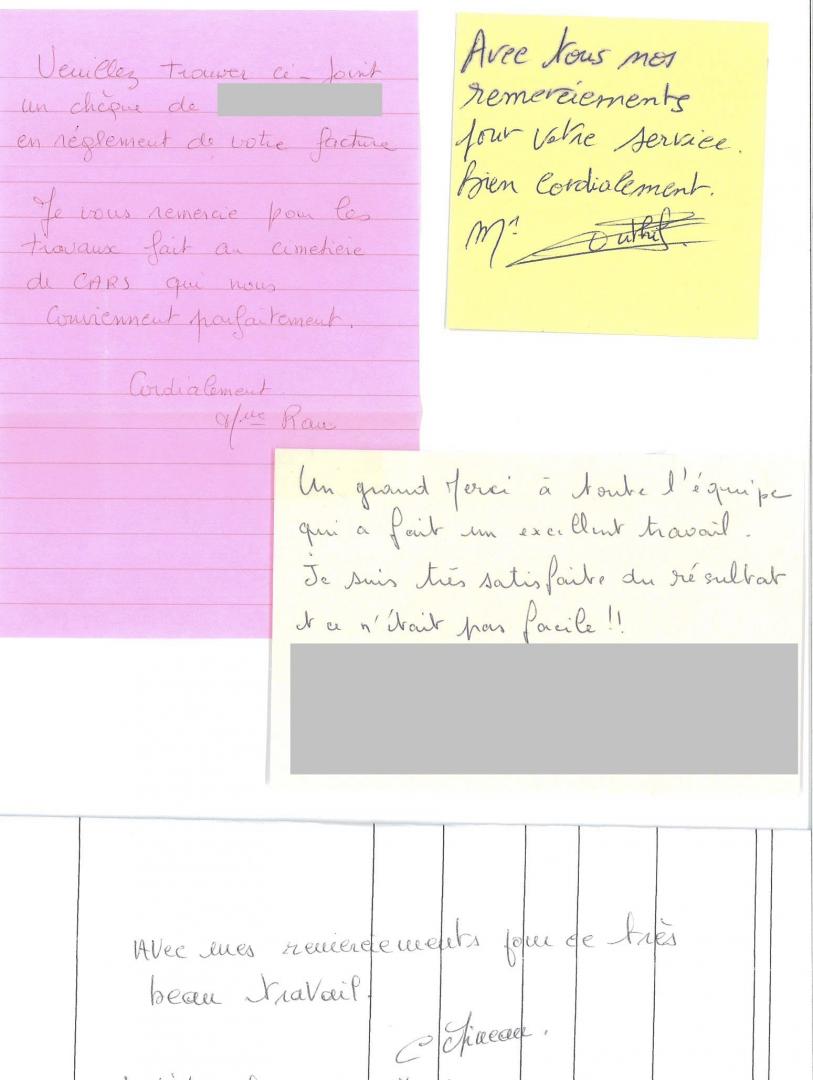 Veuillez trouver ci-joint
un chèque de
en réglement de votre facture
Je vous remercie pour les
travaux fait au cimetière
de CARS qui nous
conviennent parfaitement.
Cordialement
Mme Rau
Avec tous nos
remerciements
pour votre service.
Bien cordialement.
Mr
Un grand Merci à toute l'équipe
qui a fait un excellent travail.
Je suis très satisfaite du résultat
et ce n'était pas facile !!
Avec mes remerciements pour ce très
beau travail.